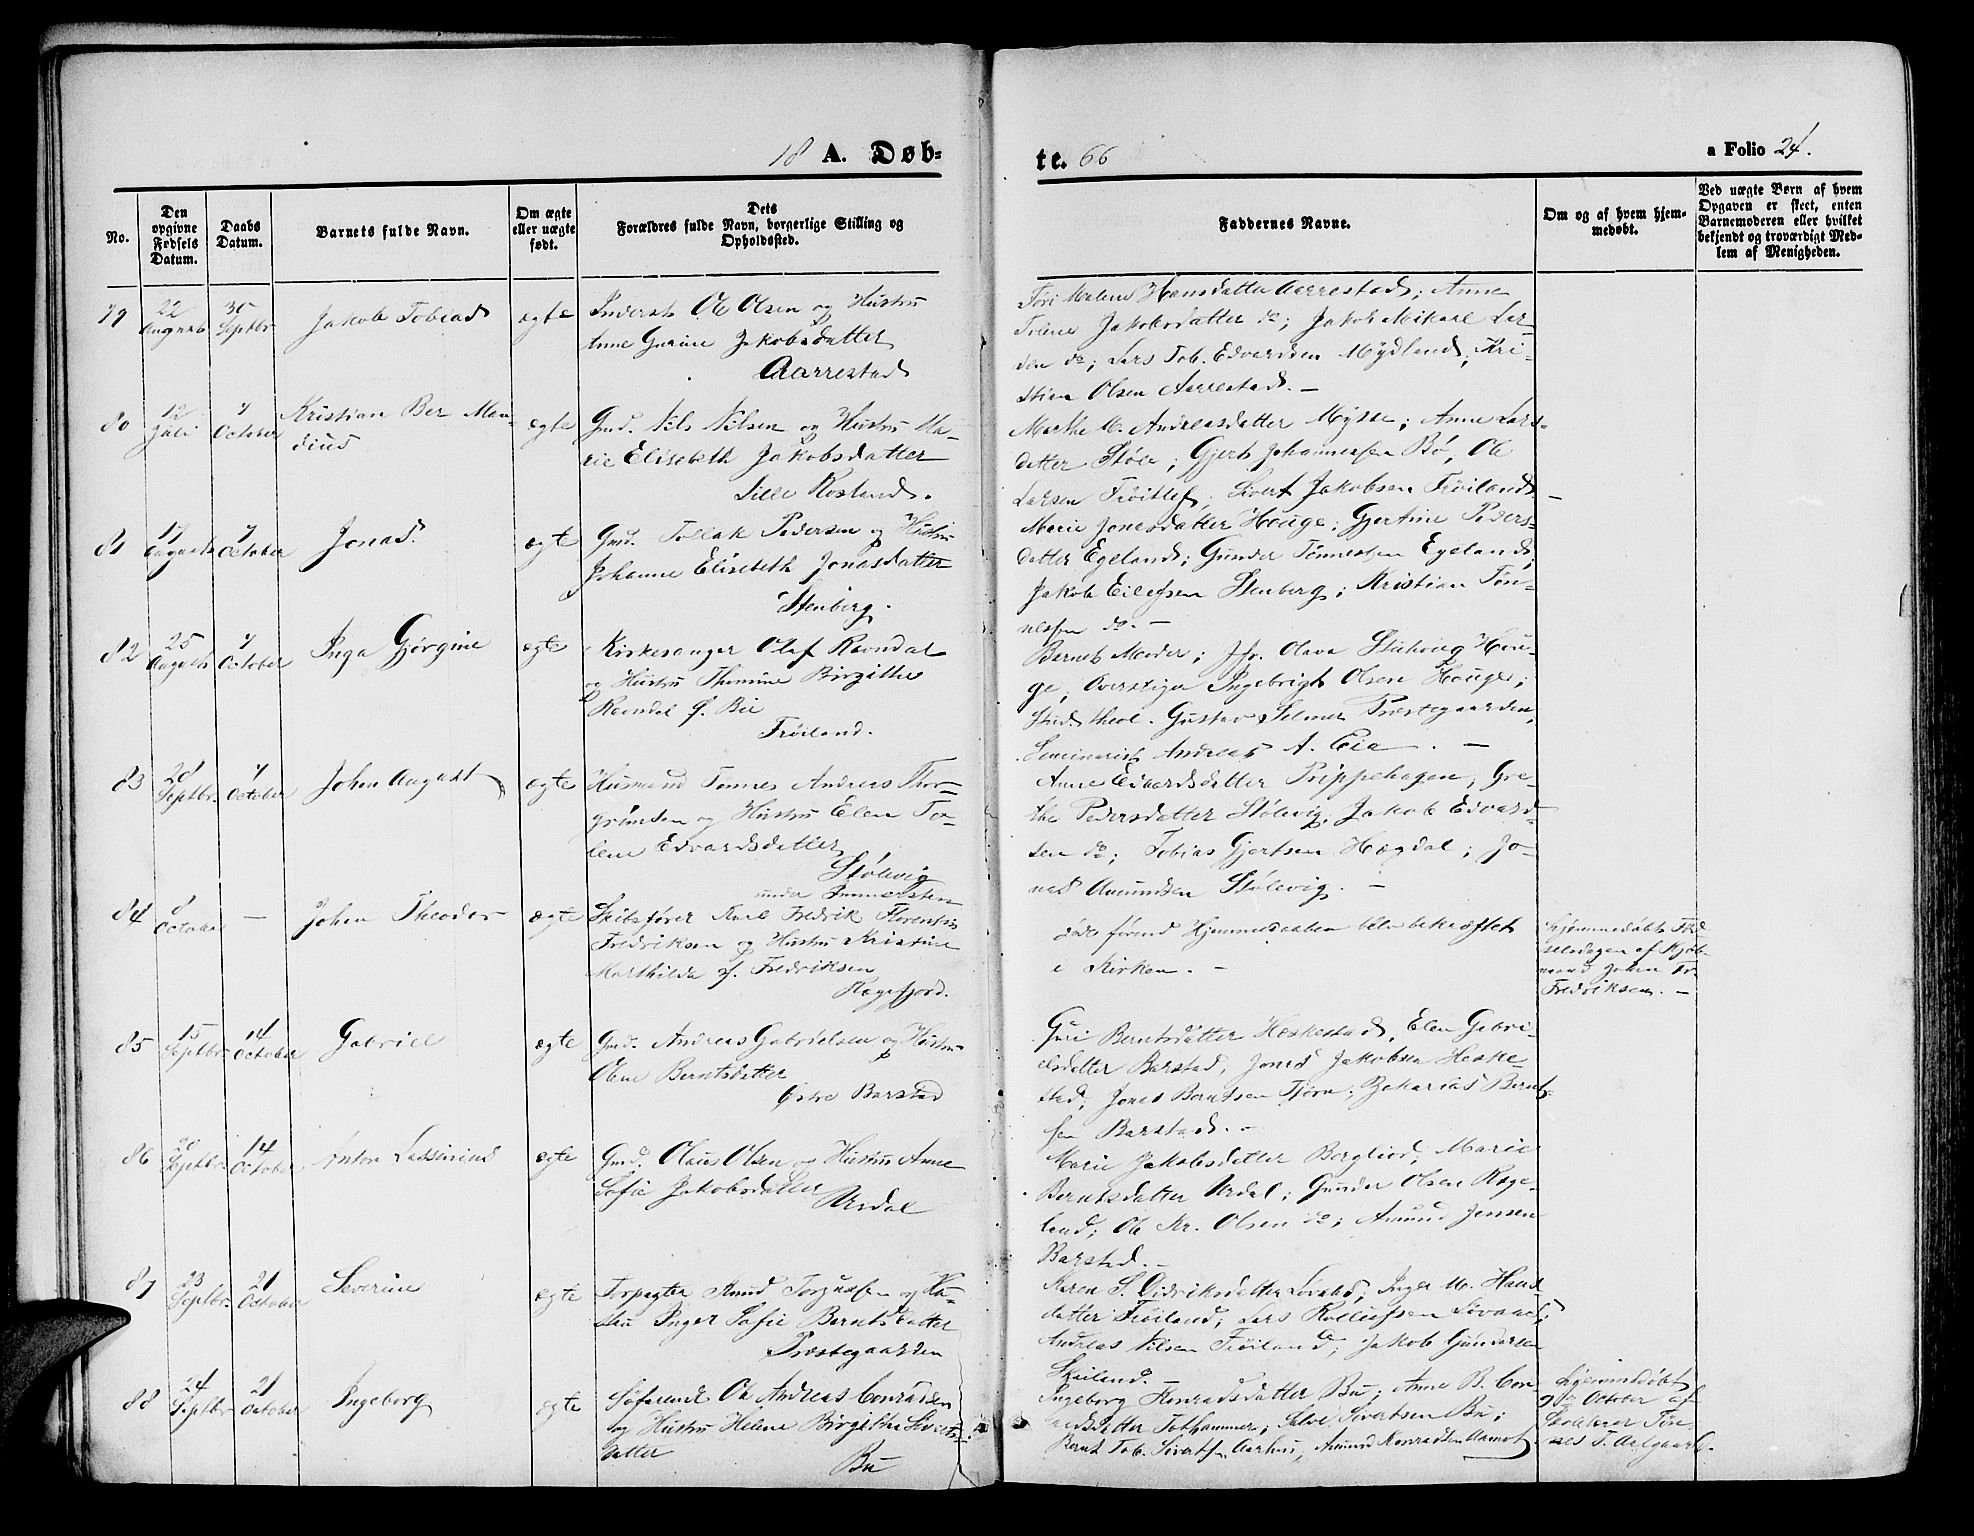 18 A. Døb-
te. 66
a Folio 24.
No.
Den opgivne Fødsels Datum.
Daabs Datum.
Barnets fulde Navn.
Om ægte eller uægte født.
Dets Forældres fulde Navn, borgerlige Stilling og Opholdssted.
Faddernes Navne.
Om og af hvem hjem-
medøbt.
Ved uægte Børn af hvem
Opgaven er skeet, enten
Barnemoderen eller hvilket
bekjendt og troværdigt Med-
lem af Menigheden.
79 22 August 30 Septbr. Jakob Tobias ægte
Inderst Ole Olsen og Hustru
Anne Gurine Jakobsdatter
Aarrestad
Malene Hansdatter Aarrestad; Anne
Tolene Jakobsdatter do; Jakob Mikael Lar-
sen do; Lars Tob. Edvardsen Mydland; Kri-
stian Olsen Aarrestad. -
80 12 Juli 7 October Kristian Ber Man-
dius ægte
Gmd. Nils Nilsen og Hustru Ma-
rie Elisebeth Jakobsdatter
Lille Rosland.
Marthe M. Andreasdatter Mysse; Anne Lars-
datter Støle; Gjert Johannessen Bø, Ole
Larsen; Sivert Jakobsen Frøiland -
81 17 August 7 October Jonas. ægte
Gmd. Tollak Pedersen og Hustru
Johanne Elisebeth Jonasdatter
Stenberg.
Marie Jonasdatter Houge; Gjertine Peders-
datter Egeland; Gunder Tønnessen Egeland;
Jakob Eilefsen Stenberg; Kristian Tøn-
nessen do. -
82 25 August 7 October Inga Gjørgine ægte
Kirkesanger Olaf Ravndal
og Hustru Thomine Birgithe
Ravndal f. Bie
Frøiland.
Barnets Moder; Jfr. Olava Hou-
ge; Ingebrigt Olsen Houge;
Stud. theol. Gustav Selmer Præstegaarden,
Seminarist Andreas A. Eie. -
83 20 Septbr. 7 October Johan August ægte
Husmand Tønnes Andreas Thor-
grimsen og Hustru Elen To-
lene Edvardsdatter
Stølevig
Anne Edvardsdatter Prippehagen; Gre-
the Pedersdatter Stølevig; Jakob Edvard-
sen do; Tobias Gjertsen Hægdal; Jo-
nas Amundsen Stølevig. -
84 8 October - Johan Theodor ægte
under
Skibsfører Karl Fredrik Florentin
Fredriksen og Hustru Kristine
Marthilde f. Fredriksen
Rægefjord.
døde førend Hjemmedaaben blev bekræftet
i Kirken. -
Hjemmedøbt Fød-
selsdagen af Kjøb-
mand Johan
Fredriksen. -
85 15 Septbr. 14 October Gabriel ægte
Gmd. Andreas Gabrielsen og Hustru
Olene Berntsdatter
Østre Barstad
Guri Berntsdatter Heskestad, Elen Gabri-
elsdatter Barstad, Jonas Jakobsen Heske-
stad; Jonas Berntsen Tjørn; Zakarias Bernt-
sen Barstad. -
86 20 Septbr. 14 October Anton Lassinius ægte
Gmd. Olaus Olsen og Hustru Anne
Sofie Jakobsdatter
Urdal
Marie Jakobsdatter Berglied, Marie
Berntsdatter Urdal; Gunder Olsen Rege-
land; Ole Kr. Olsen do; Amund Jensen
Barstad. -
87 23 Septbr. 21 October Severine ægte
Forpagter Knud Torgussen og Hu-
stru Inger Sofie Berntsdatter
Præstegaarden
Karen S. Didriksdatter Løvaas; Inger M. Hans-
datter Frøiland; Lars Rollufsen Løvaas;
Andreas Nilsen Frøiland; Jakob Gundersen
Skeiland. -
88 24 Septbr. 21 October Ingeborg ægte
Søfarende Ole Andreas Conradsen
og Hustru Helene Birgithe Siverts-
datter
Bu
Ingeborg Konradsdatter Bu; Anne B. Con-
radsdatter Tothammer; Salve Sivertsen Bu;
Bernt Tob. Sivertsen Aarhus; Amund Konradsen Aamot
Hjemmedøbt
October af
Skolelærer Tøn-
nes T. Aalgaard.